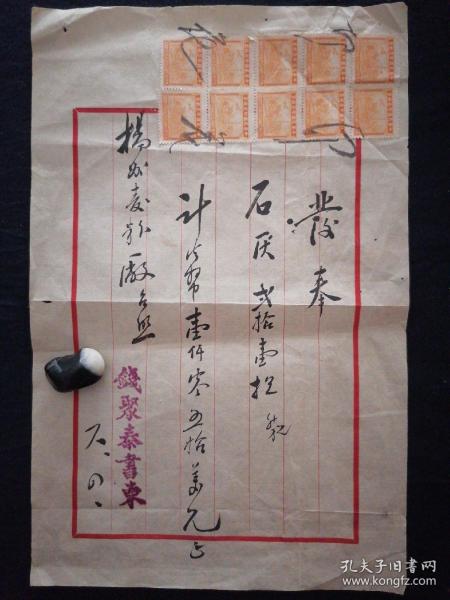 發奉
石灰弍拾壹担
計公幣壹仟零五拾萬元正
揚州麦粉厰台照
錢聚泰書柬
孔夫子旧书网
www.kongfz.com